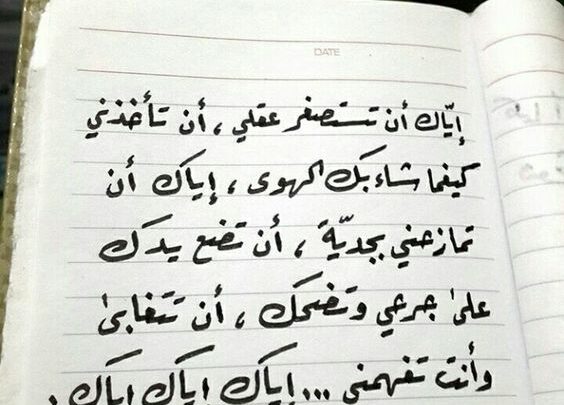 DATE
إيّاك أن تستصغر عقلي ، أن تأخذني
كيفما شاء بك الهوى ، إياك أن
تمازحني بجديّة ، أن تضع يدك
على جرحي وتضحك ، أن تتغابى
وأنت تفهمني ... إياك اياك اياك .